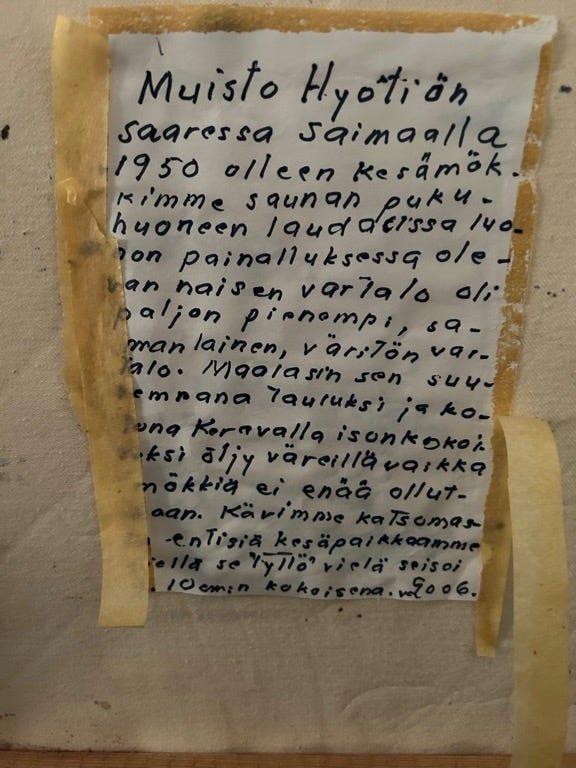 Muisto Hyötiön
saaressa Saimaalla
1950 olleen kesämök-
kimme saunan puku-
huoneen laudoissa luo-
non painalluksessa ole-
van naisen vartalo oli
paljon pienempi, sa-
manlainen, väritön var-
talo. Maalasin sen suu-
rempana tauluksi ja ko-
tona Keravalla isonkokoi-
seksi öljy väreillä vaikka
mökkiä ei enää ollut-
kaan. Kävimme katsomas-
entisiä kesäpaikkaamme
siellä se "Tyttö" vielä seisoi
10 cm:n kokoisena. 2006.